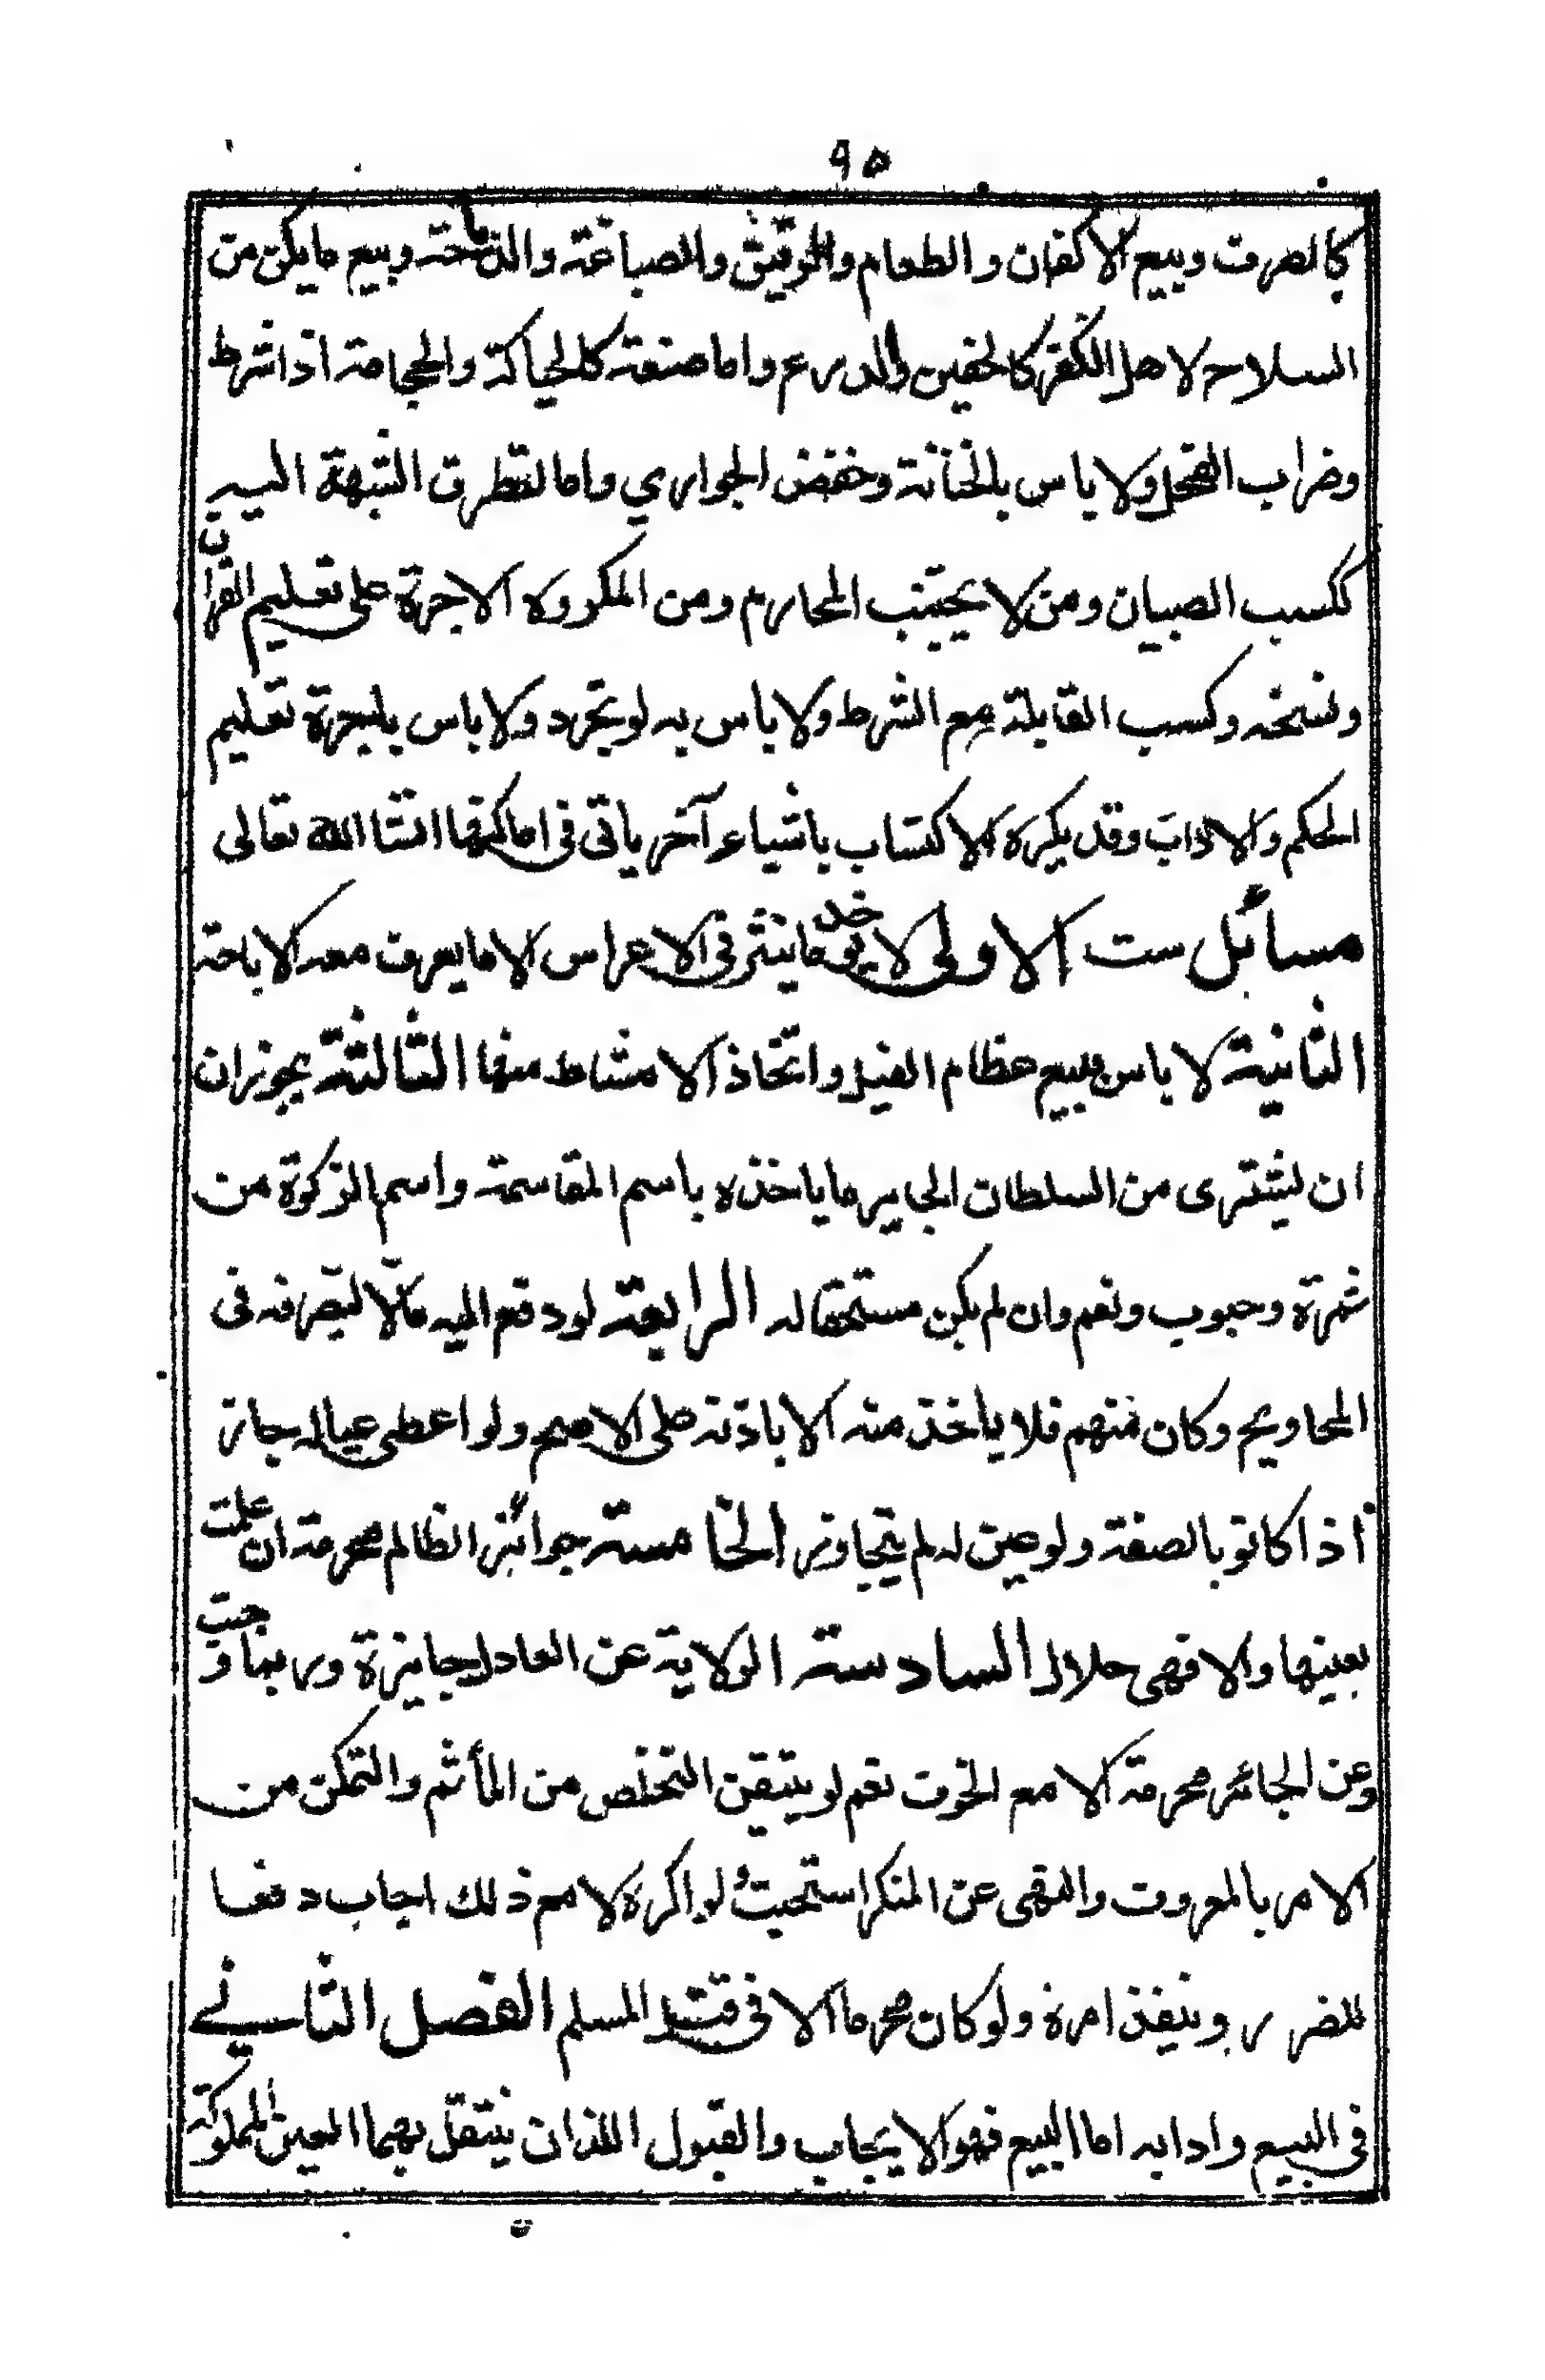 ٩٥
كالصرف وبيع الاكفان والطعام والرقيق والصباغة والذباحته وبيع ما يكن من
السلاح لاهل الكفر كالخفين والدرع واما صنعة كالحياكة والحجامة اذا شرط
وضراب الفحل ولا باس بالختانة وخفض الجواري واما لتطرق الشبهة اليه
ككسب الصبيان ومن لا يجتنب المحارم ومن المكروه الاجرة على تعليم القران
ونسخه وكسب القابلة مع الشرط ولا باس به لو تجرد ولا باس باجرة تعليم
الحكم والاداب وقد يكره الاكتساب باشياء آخر ياتى فى اماكنها انشا الله تعالى
مسائل ست الاولى لا يوخد ما ينثر فى الاعراس الا ما يعرف معه الاباحة
الثانية لا باس ببيع عظام الفيل واتخاذ الامشاط منها الثالثة يجوز ان
ان يشترى من السلطان الجاير ما ياخذه باسم المقاسمة واسم الزكوة من
ثمرة وحبوب ونعم وان لم يكن مستحقا له الرابعة لو دفع اليه مالا ليصرفه فى
المحاويج وكان منهم فلا ياخذ منه الا باذنه على الاصح ولو اعطى عياله جاز
اذا كانو بالصفة ولو عين له لم يتجاوز الخامسة جوائز الظالم محرمة ان علمت
بعينها والا فهى حلال السادسة الولاية عن العادل جايزة وربما وجبت
وعن الجائر محرمة الا مع الخوف نعم لو يتيقن التخلص من المأثم والتمكن من
الامر بالمعروف والنهى عن المنكر استحبت ولو اكره لا مع ذلك اجاب دفعا
للضرر وينفذ امره ولو كان محرما الا فى قتل المسلم الفصل الثانے
فى البيع وادابه اما البيع فهو الايجاب والقبول اللذان ينتقل بهما العين المملوكة